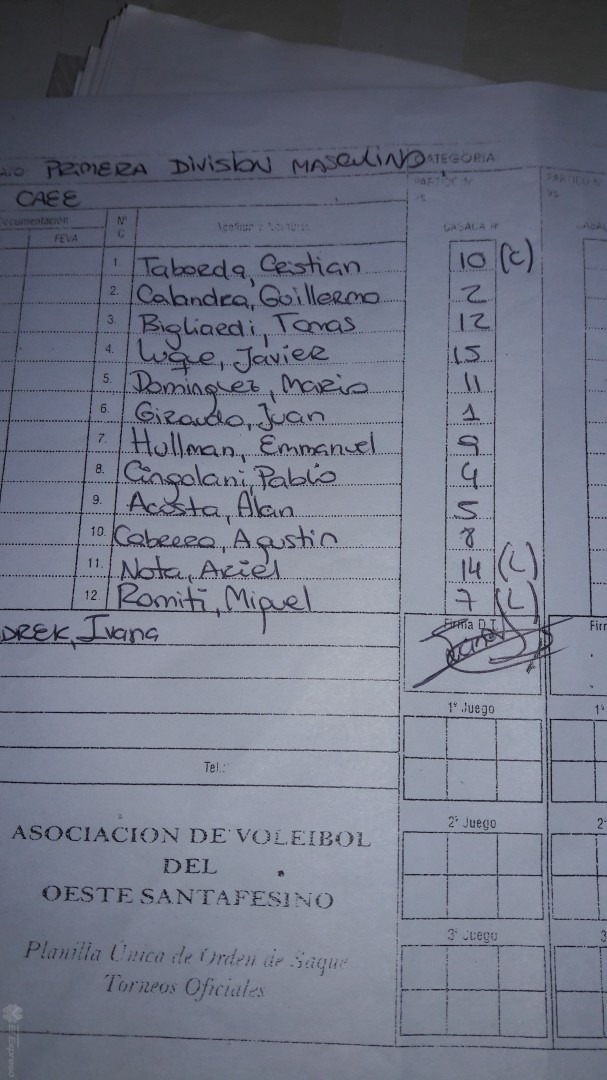 PRIMERA DIVISION MASCULINO CATEGORIA
CAEE
Documentación
FEVA
Nº
Apellido y Nombres
CASACA Nº
1. Taborda, Cristian 10 (C)
2. Calandra, Guillermo 2
3. Bigliardi, Tomas 12
4. Luque, Javier 15
5. Dominguez, Mario 11
6. Giraudo, Juan 1
7. Hullman, Emmanuel 9
8. Cingolani, Pablo 4
9. Acosta, Alan 5
10. Cabrera, Agustin 8
11. Nota, Ariel 14 (L)
12. Romiti, Miguel 7 (L)
DREK, Ivana
Firma D.T.
Fir
1º Juego
1º
Tel.:
2º Juego
2º
ASOCIACION DE VOLEIBOL
DEL
OESTE SANTAFESINO
3º Juego
3
Planilla Única de Orden de Saque
Torneos Oficiales